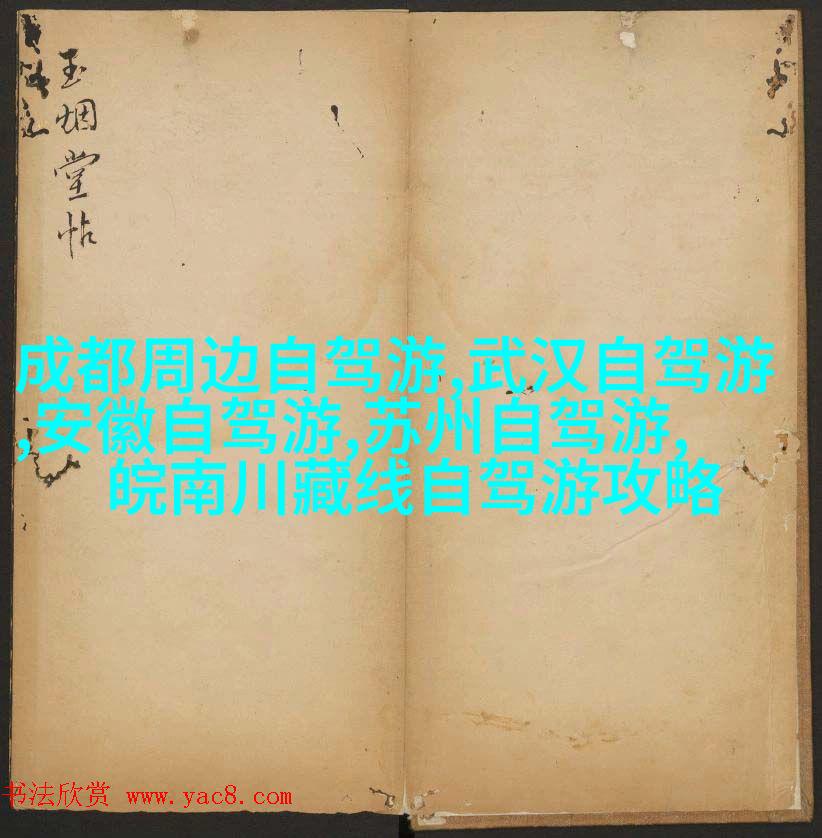 玉烟堂帖
成都周边自驾游,武汉自驾游
,安徽自驾游,苏州自驾游,
皖南川藏线自驾游攻略
书法欣赏 www.yac8.com